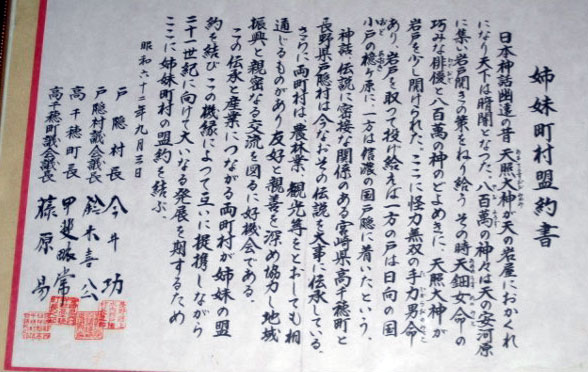 姉妹町村盟約書
日本神話幽遠の昔 天照大神が天の岩屋におかくれ
になり天下は暗闇となった。八百萬の神々は天の安河原
に集い岩戸開きの策をねり給う その時天鈿女命の
巧みな俳優と八百萬の神のどよめきに、天照大神が
岩戸を少し開けられた。ここに怪力無双の手力男命
あり、岩戸を取って投げ給えば一方の戸は日向の国
小戸の檍ヶ原に、一方は信濃の国戸隠に着いたという。
神話 伝説に密接な関係のある宮崎県高千穂町と
長野県戸隠村は今なおその伝説を大事に伝承している。
さらに両町村は農林業、観光等をとおしても相
通じるものがあり友好と親善を深め協力し地域
振興と親密なる交流を図るに好機会である。
この伝承と産業につながる両町村が姉妹の盟
約を結び この機縁によって互いに提携しながら
二十一世紀に向けて大いなる発展を期するため
ここに姉妹町村の盟約を結ぶ。
昭和六十二年九月三日
戸隠村長 今井 功
戸隠村議会議長 鈴木喜公
高千穂町長 甲斐 常
高千穂町議会議長 藤原 昜